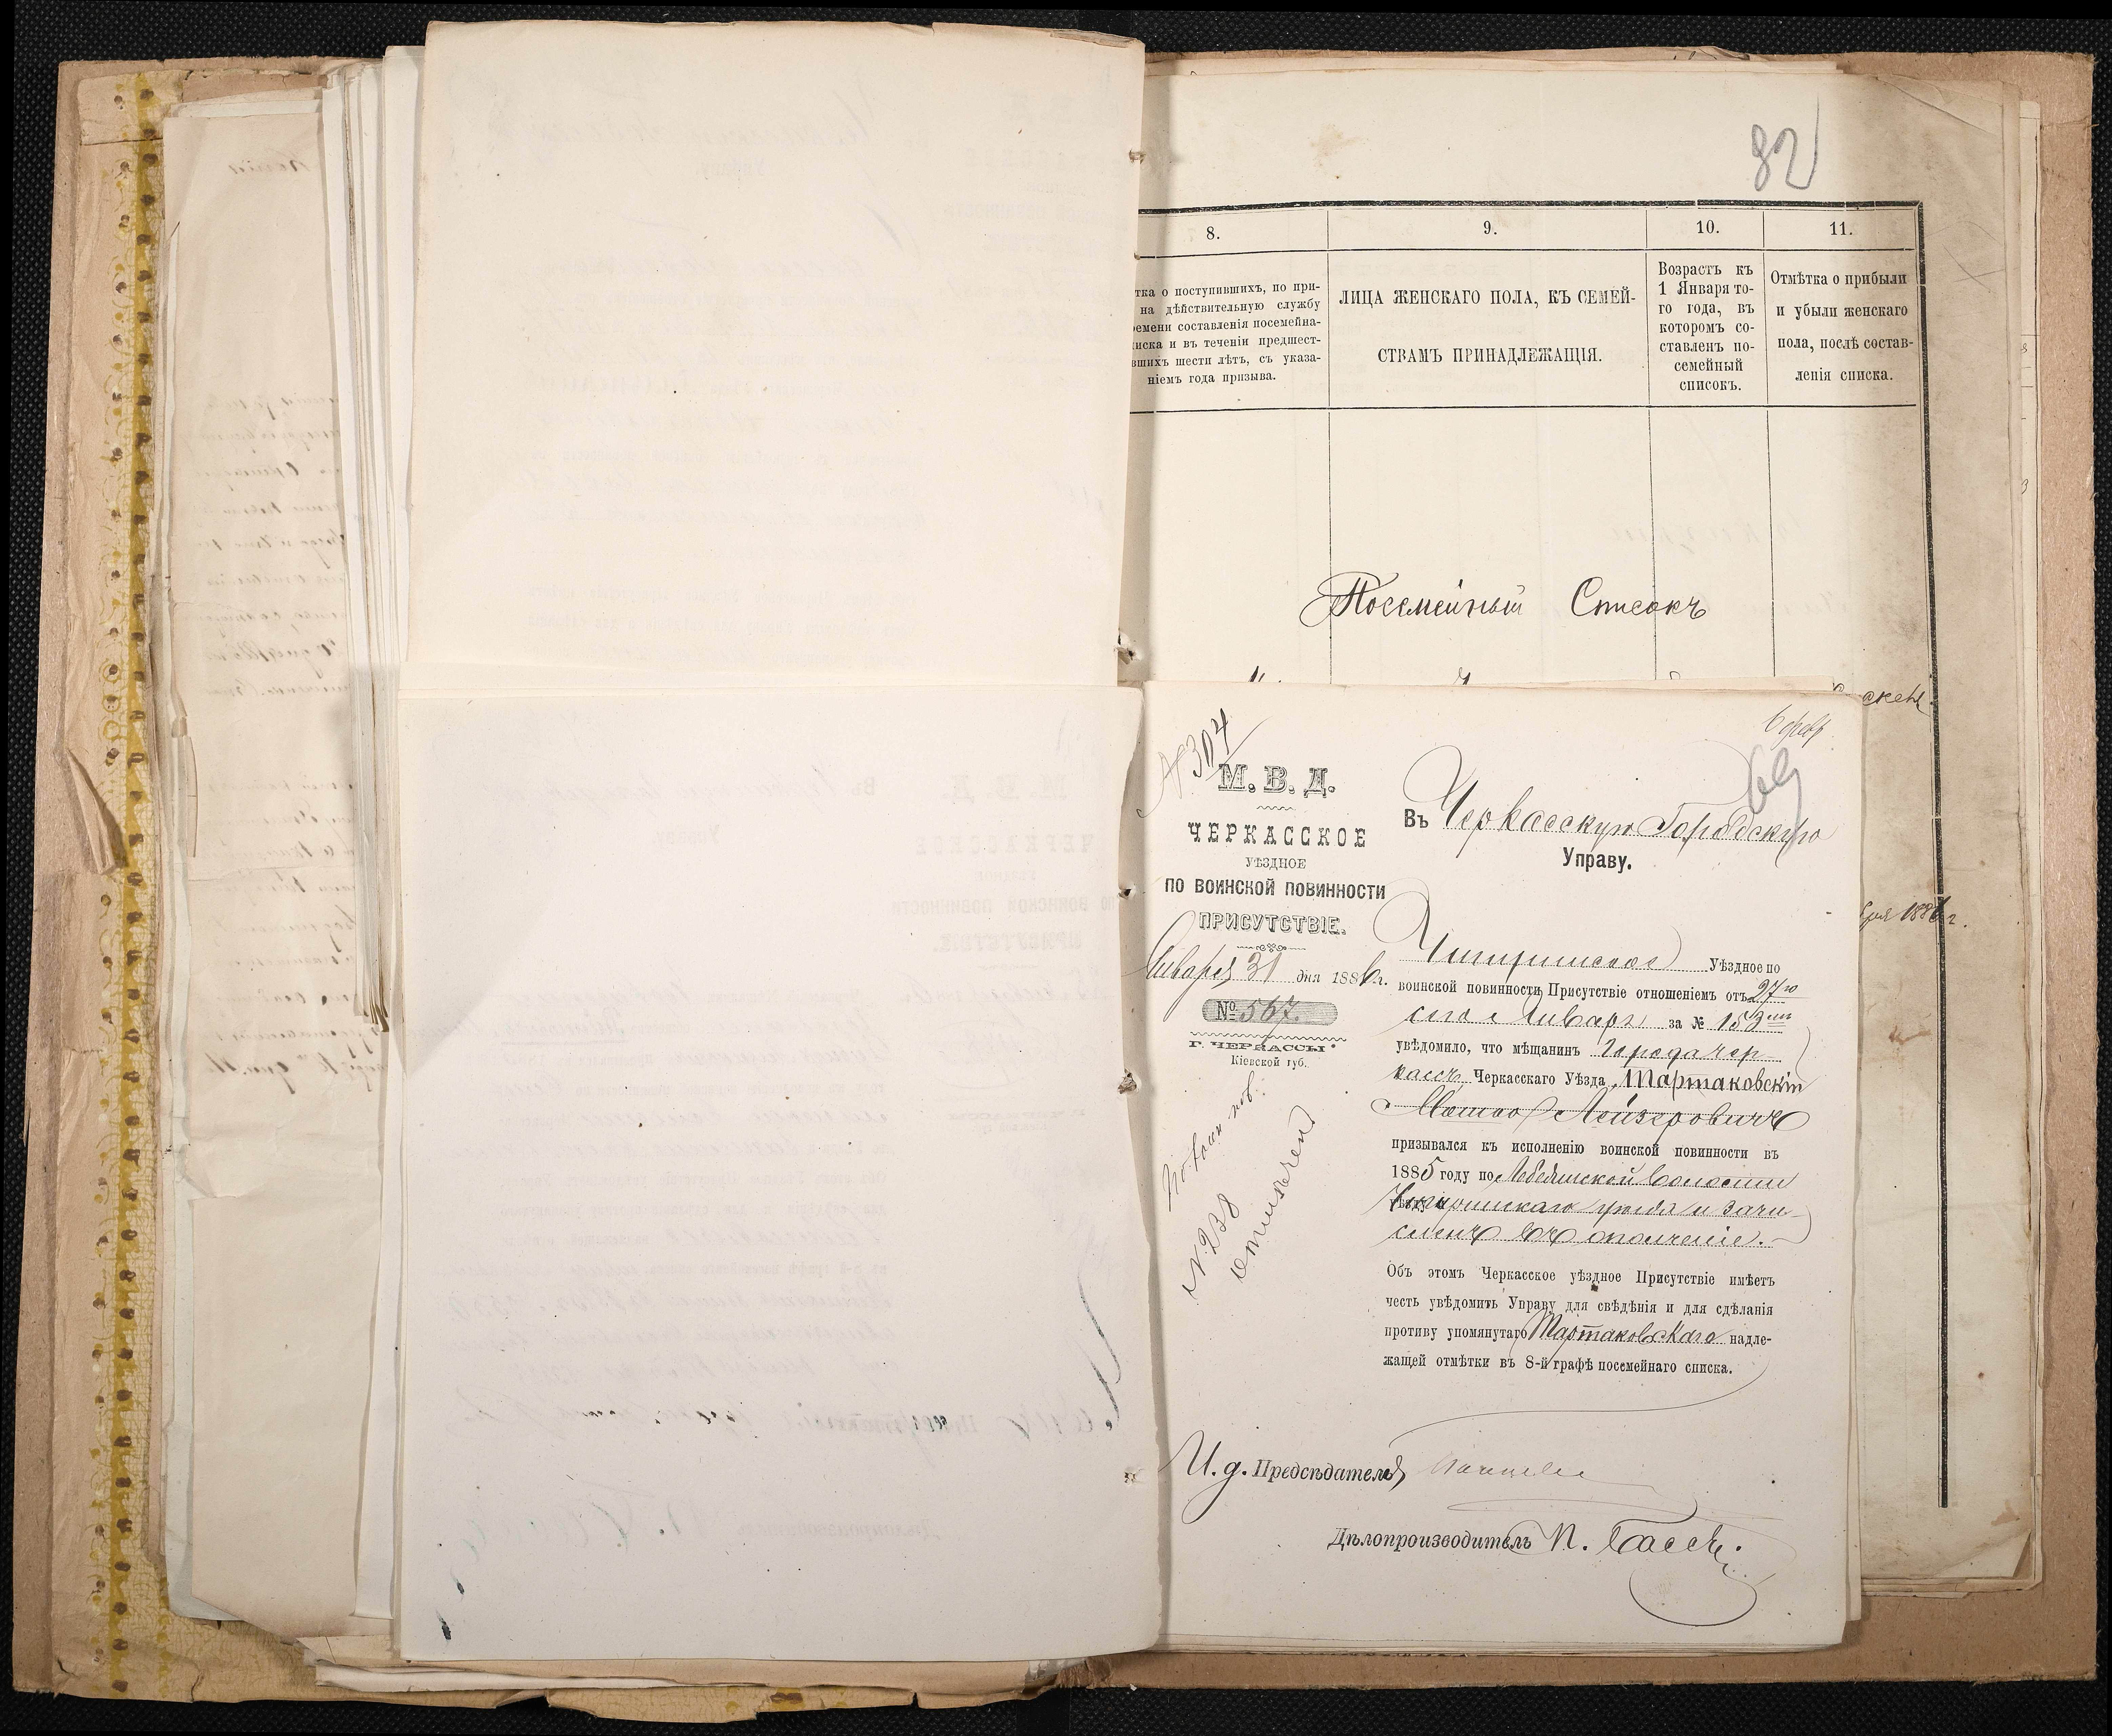 82
8.
9.
10.
11.
тка о поступившихъ, по при-
на дѣйствительную службу
ремени составленія посемейна-
иска и въ теченіи предшест-
вшихъ шести лѣтъ, съ указа-
ніемъ года призыва.
ЛИЦА ЖЕНСКАГО ПОЛА, КЪ СЕМЕЙ-
СТВАМЪ ПРИНАДЛЕЖАЩІЯ.
Возрастъ къ
1 Января то-
го года, въ
которомъ со-
ставленъ по-
семейный
списокъ.
Отмѣтка о прибыли
и убыли женскаго
пола, послѣ состав-
ленія списка.
Посемейный Списокъ
№ 304
М. В. Д.
ЧЕРКАССКОЕ
УѢЗДНОЕ
ПО ВОИНСКОЙ ПОВИННОСТИ
ПРИСУТСТВІЕ.
Января 31 дня 1886 г.
№ 567.
Г. ЧЕРКАССЫ
Кіевской губ.
По воин. пов.
№ 238
отмѣчен
6 февр
69
Въ Черкасскую Городскую
Управу.
Чигиринское Уѣздное по
воинской повинности Присутствіе отношеніемъ отъ 27го
сего Января за № 153
увѣдомило, что мѣщанинъ города Чер-
кассъ, Черкасскаго Уѣзда, Тартаковскій
Лейзеровичъ
призывался къ исполненію воинской повинности въ
1885 году по Лебединской волости
Чигиринскаго уѣзда и зачи-
сленъ въ ополченіе.
Объ этомъ Черкасское уѣздное Присутствіе имѣетъ
честь увѣдомить Управу для свѣдѣнія и для сдѣланія
противу упомянутаго Тартаковскаго надле-
жащей отмѣтки въ 8-й графѣ посемейнаго списка.
И. д. Предсѣдателя
Дѣлопроизводитель П. Бассъ